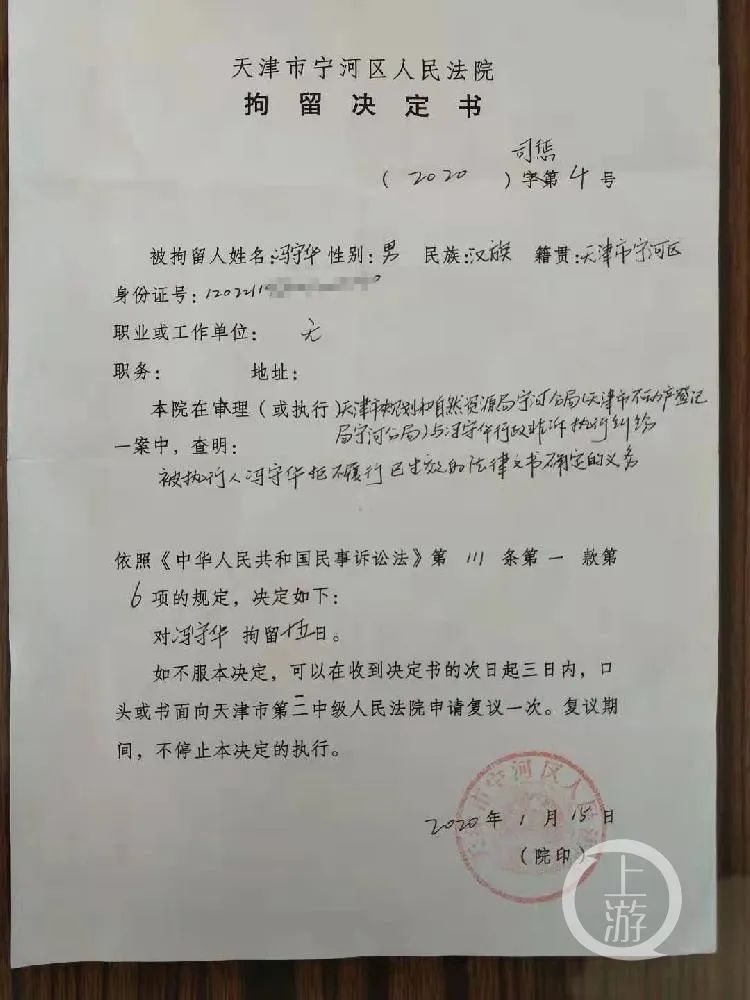 天津市宁河区人民法院
拘留决定书
司惩
(2020)字第4号
被拘留人姓名:冯守华 性别:男 民族:汉族 籍贯:天津市宁河区
身份证号:120221
职业或工作单位: 无
职务: 地址:
本院在审理(或执行)天津市规划和自然资源局宁河分局(天津市不动产登记
局宁河分局)与冯守华行政非诉执行纠纷
一案中,查明:
被执行人冯守华拒不履行已生效的法律文书确定的义务
依照《中华人民共和国民事诉讼法》第 111 条第一款第
6 项的规定,决定如下:
对冯守华 拘留 日。
如不服本决定,可以在收到决定书的次日起三日内,口
头或书面向天津市第三中级人民法院申请复议一次。复议期
间,不停止本决定的执行。
天津市宁河区人民法院
2020年1月15日
(院印)
上游